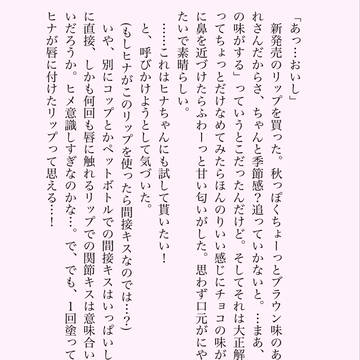 「あっ…おいし」
　新発売のリップを買った。秋っぽくちょーっとブラウン味のあ
れさんだからさ、ちゃんと季節感？追っていかないと。…まあ、
の味がする」っていうとこだったんだけど。そしてそれは大正解
ってちょっとだけなめてみたらほんのりいい感じにチョコの味が
に鼻を近づけたらふわーっと甘い匂いがした。思わず口元がにや
たいで素晴らしい。
　……これはヒナちゃんにも試して貰いたい！
　と、呼びかけようとして気づいた。
（もしヒナがこのリップを使ったら間接キスなのでは…？）
　いや、別にコップとかペットボトルでの間接キスはいっぱいし
に直接、しかも何回も唇に触れるリップでの関節キスは意味合い
いだろうか。ヒメ意識しすぎなのかな…。で、でも、１回塗って
ヒナが唇に付けたリップって思える…！